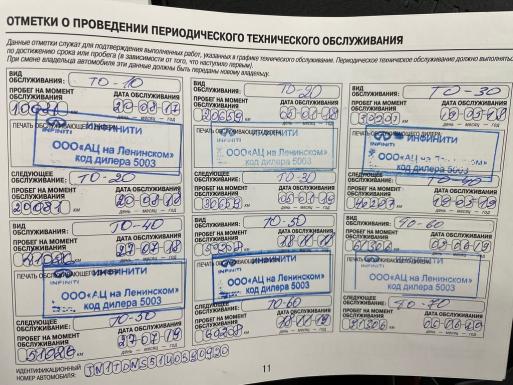 ОТМЕТКИ О ПРОВЕДЕНИИ ПЕРИОДИЧЕСКОГО ТЕХНИЧЕСКОГО ОБСЛУЖИВАНИЯ
Данные отметки служат для подтверждения выполненных работ, указанных в графике технического обслуживания. Периодическое техническое обслуживание должно выполняться
по достижению срока или пробега (в зависимости от того, что наступило первым).
При смене владельца автомобиля эти данные должны быть переданы новому владельцу.
ВИД ОБСЛУЖИВАНИЯ: ТО-10
ПРОБЕГ НА МОМЕНТ ОБСЛУЖИВАНИЯ ДАТА ОБСЛУЖИВАНИЯ
29 08 17
км день — месяц — год
ИНФИНИТИ
INFINITI
ООО«АЦ на Ленинском»
код дилера 5003
СЛЕДУЮЩЕЕ ОБСЛУЖИВАНИЕ: ТО-20
ПРОБЕГ НА МОМЕНТ ОБСЛУЖИВАНИЯ ДАТА ОБСЛУЖИВАНИЯ
29 08 18
км день — месяц — год
ВИД ОБСЛУЖИВАНИЯ: ТО-20
ПРОБЕГ НА МОМЕНТ ОБСЛУЖИВАНИЯ ДАТА ОБСЛУЖИВАНИЯ
20659
км день — месяц — год
ИНФИНИТИ
INFINITI
ООО«АЦ на Ленинском»
код дилера 5003
СЛЕДУЮЩЕЕ ОБСЛУЖИВАНИЕ: ТО-30
ПРОБЕГ НА МОМЕНТ ОБСЛУЖИВАНИЯ ДАТА ОБСЛУЖИВАНИЯ
30659
км день — месяц — год
ВИД ОБСЛУЖИВАНИЯ: ТО-30
ПРОБЕГ НА МОМЕНТ ОБСЛУЖИВАНИЯ ДАТА ОБСЛУЖИВАНИЯ
км день — месяц — год
ИНФИНИТИ
INFINITI
ООО«АЦ на
код дилера 5003
СЛЕДУЮЩЕЕ ОБСЛУЖИВАНИЕ: ТО-40
ПРОБЕГ НА МОМЕНТ ОБСЛУЖИВАНИЯ ДАТА ОБСЛУЖИВАНИЯ
км день — месяц — год
ВИД ОБСЛУЖИВАНИЯ: ТО-40
ПРОБЕГ НА МОМЕНТ ОБСЛУЖИВАНИЯ ДАТА ОБСЛУЖИВАНИЯ
27 07 18
ИНФИНИТИ
INFINITI
ООО«АЦ на Ленинском»
код дилера 5003
СЛЕДУЮЩЕЕ ОБСЛУЖИВАНИЕ: ТО-50
ПРОБЕГ НА МОМЕНТ ОБСЛУЖИВАНИЯ ДАТА ОБСЛУЖИВАНИЯ
27 07 19
км день — месяц — год
ВИД ОБСЛУЖИВАНИЯ: ТО-50
ПРОБЕГ НА МОМЕНТ ОБСЛУЖИВАНИЯ ДАТА ОБСЛУЖИВАНИЯ
18 11 18
ИНФИНИТИ
INFINITI
ООО«АЦ на Ленинском»
код дилера 5003
СЛЕДУЮЩЕЕ ОБСЛУЖИВАНИЕ: ТО-60
ПРОБЕГ НА МОМЕНТ ОБСЛУЖИВАНИЯ ДАТА ОБСЛУЖИВАНИЯ
18 11 19
км день — месяц — год
ВИД ОБСЛУЖИВАНИЯ: ТО-60
ПРОБЕГ НА МОМЕНТ ОБСЛУЖИВАНИЯ ДАТА ОБСЛУЖИВАНИЯ
61306
км день — месяц — год
ИНФИНИТИ
INFINITI
ООО«АЦ на Ленинском»
код дилера 5003
СЛЕДУЮЩЕЕ ОБСЛУЖИВАНИЕ: ТО-70
ПРОБЕГ НА МОМЕНТ ОБСЛУЖИВАНИЯ ДАТА ОБСЛУЖИВАНИЯ
71306
км день — месяц — год
ИДЕНТИФИКАЦИОННЫЙ НОМЕР АВТОМОБИЛЯ:
11